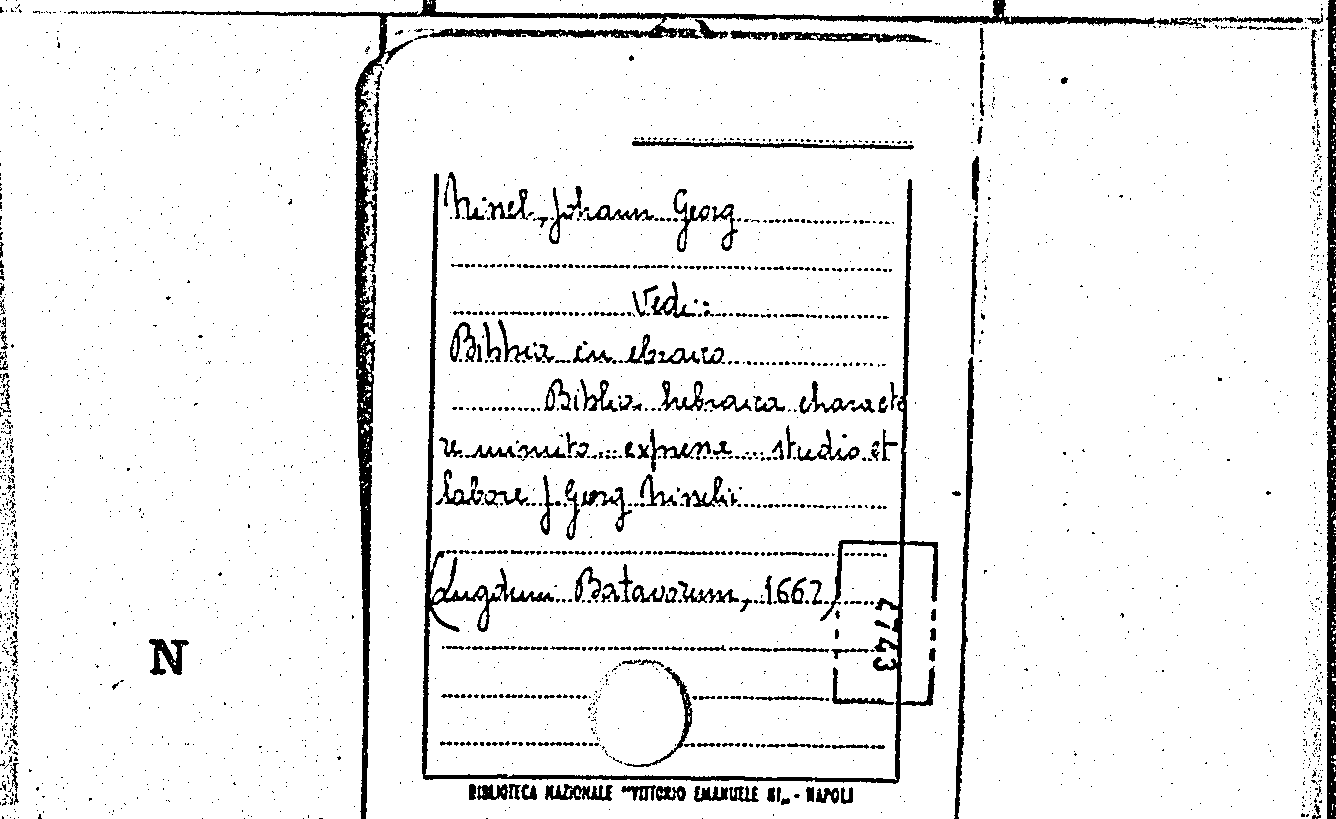 Nissel, Johann Georg
Vedi:
Bibbia in ebraico
Biblia hebraica characte
re minuto ... expresse ... studio et
labore J. Georg Nisselii
(Lugduni Batavorum, 1662)
4743
N
BIBLIOTECA NAZIONALE "VITTORIO EMANUELE III„ - NAPOLI